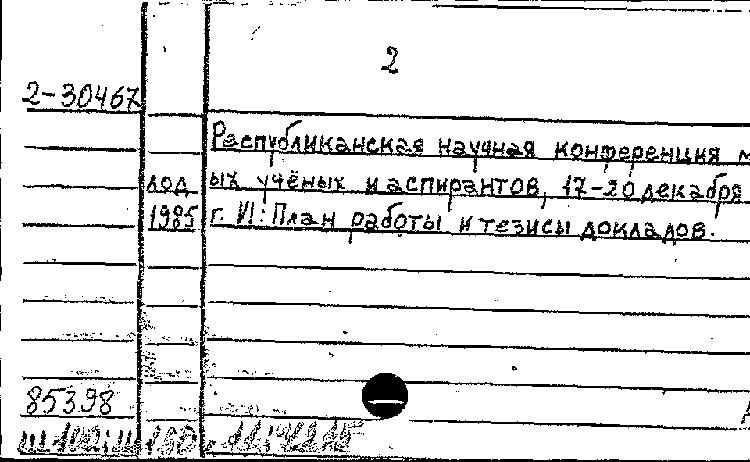 2
2-30467
Республиканская научная конференция м
лод ых учёных и аспирантов, 17-20 декабря
1985 г. И.: План работы и тезисы докладов.
85398